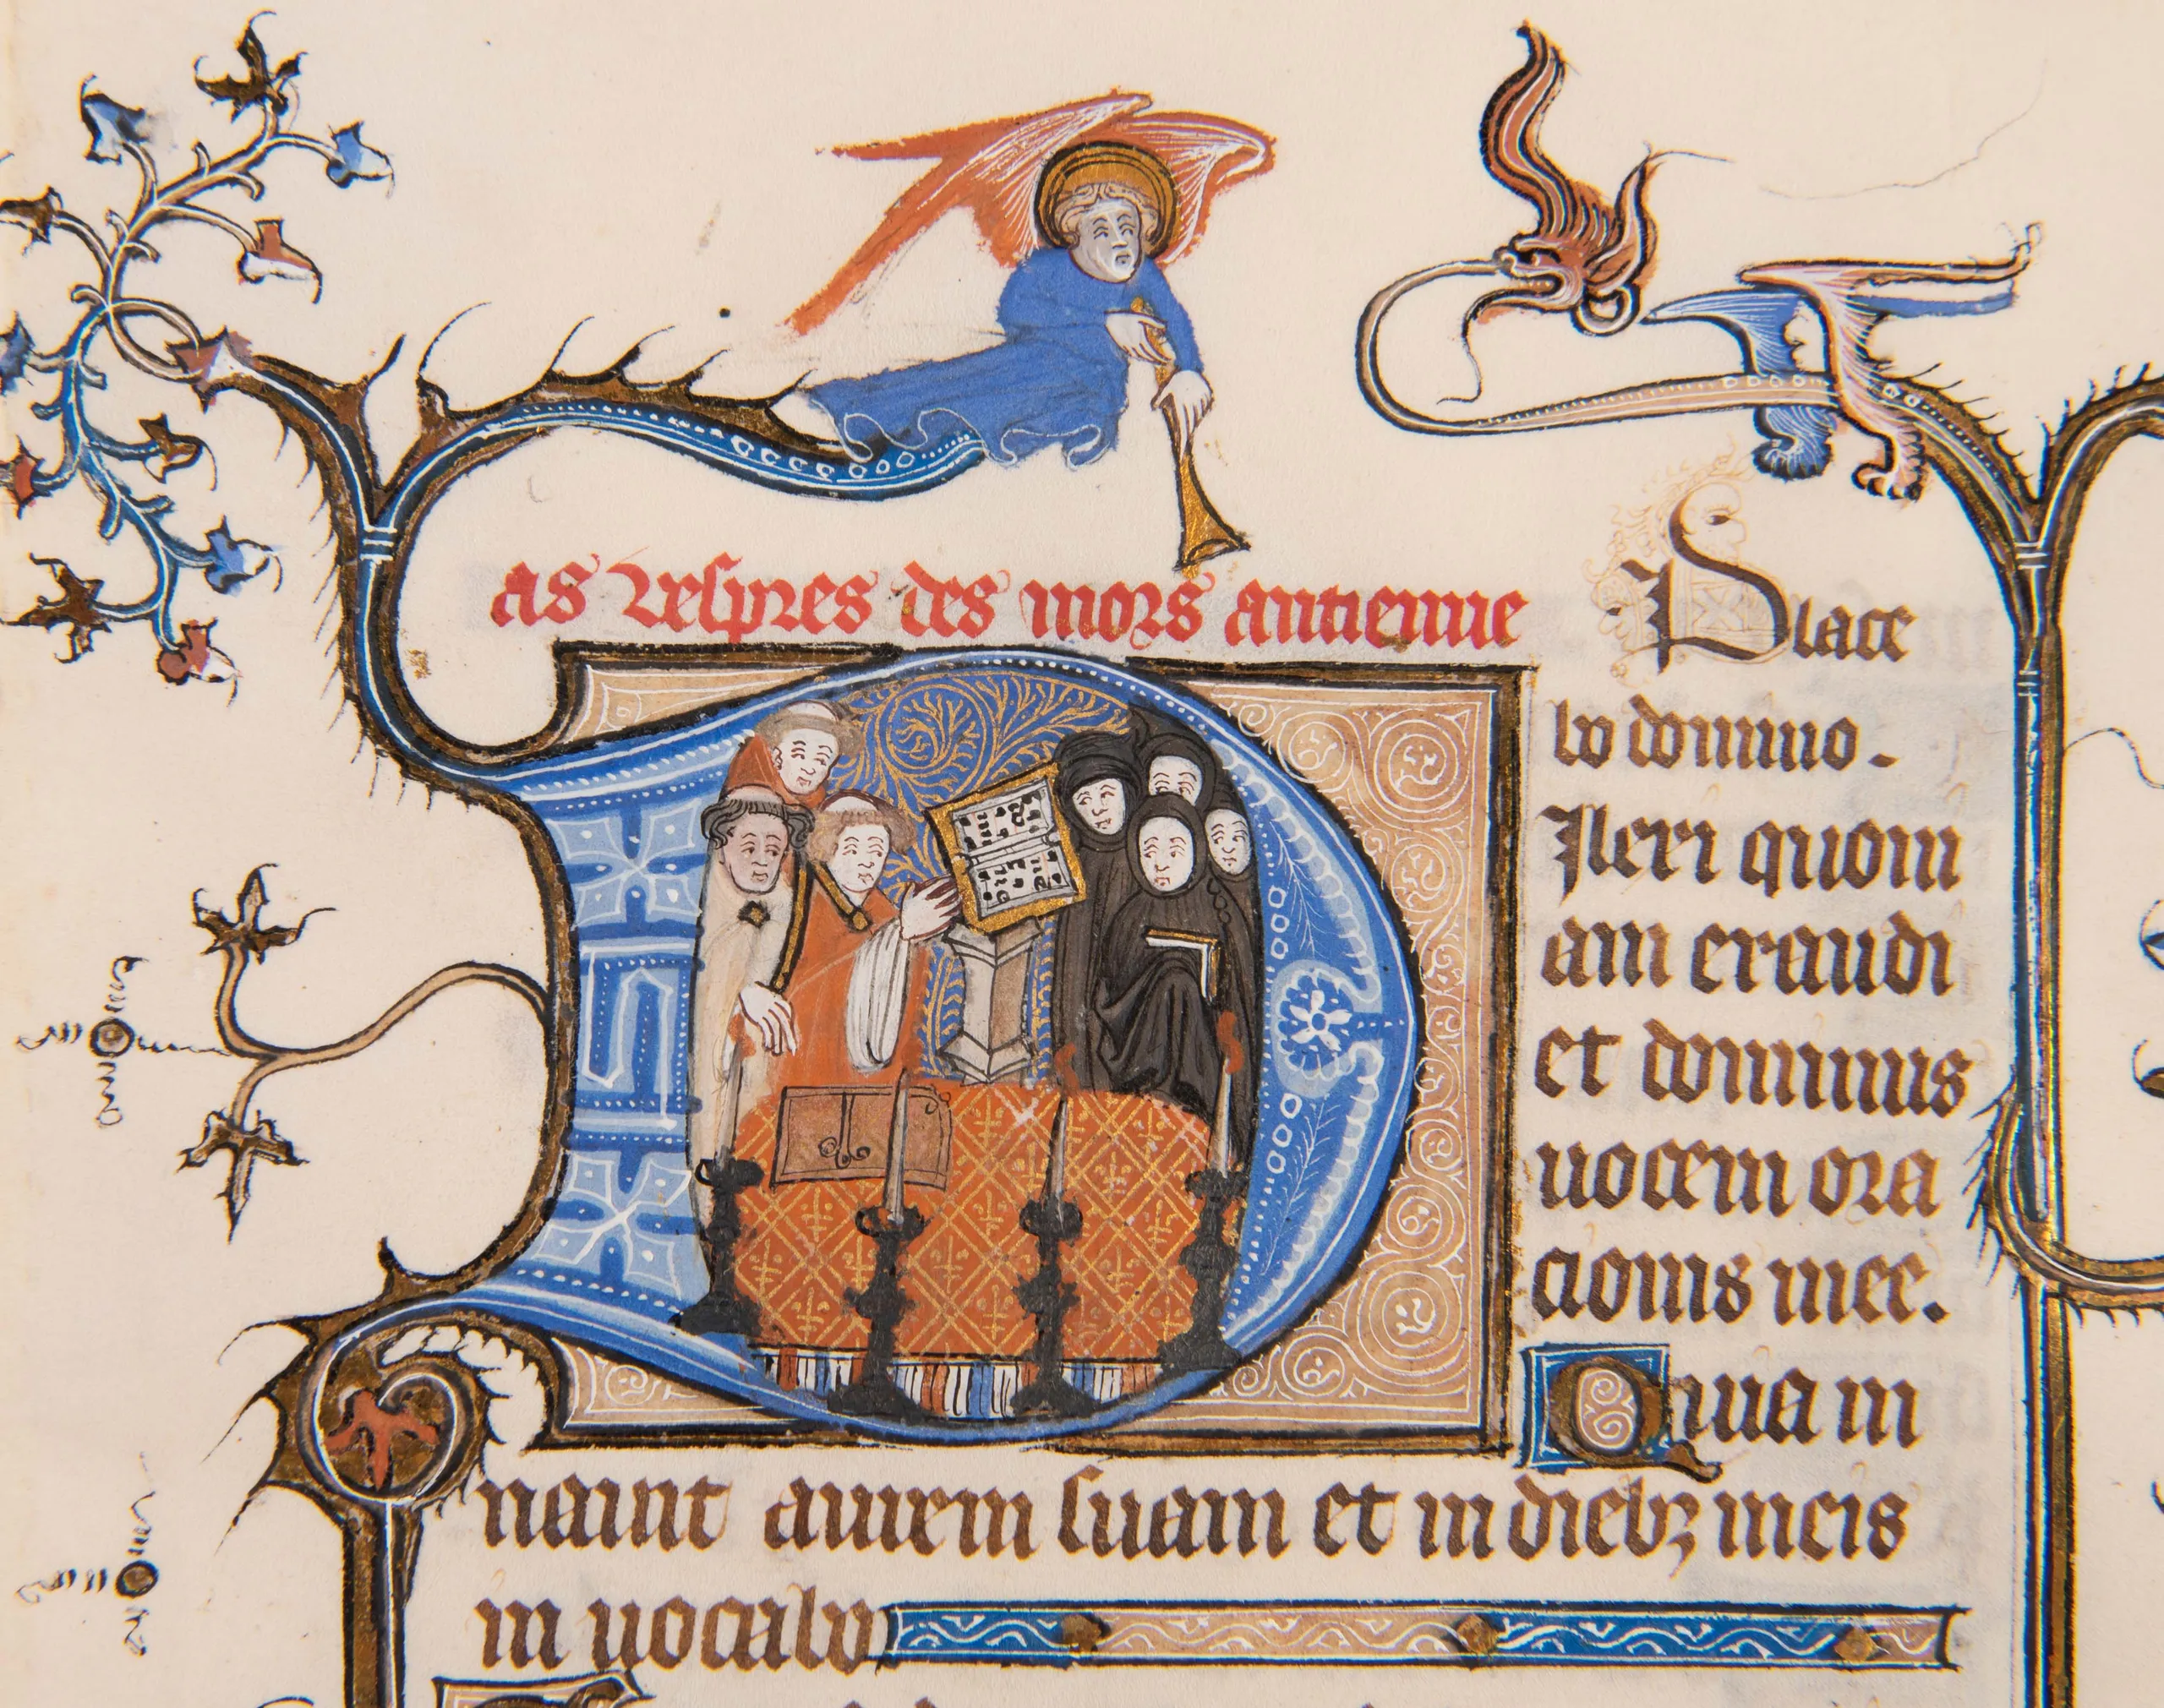 as vespres des mors antienne
Place
bo domino.
Dilexi quoni
am exaudi
et dominus
vocem ora
cionis mee.
Quia in
naunt aurem suam et in diebꝫ meis
in vocabo